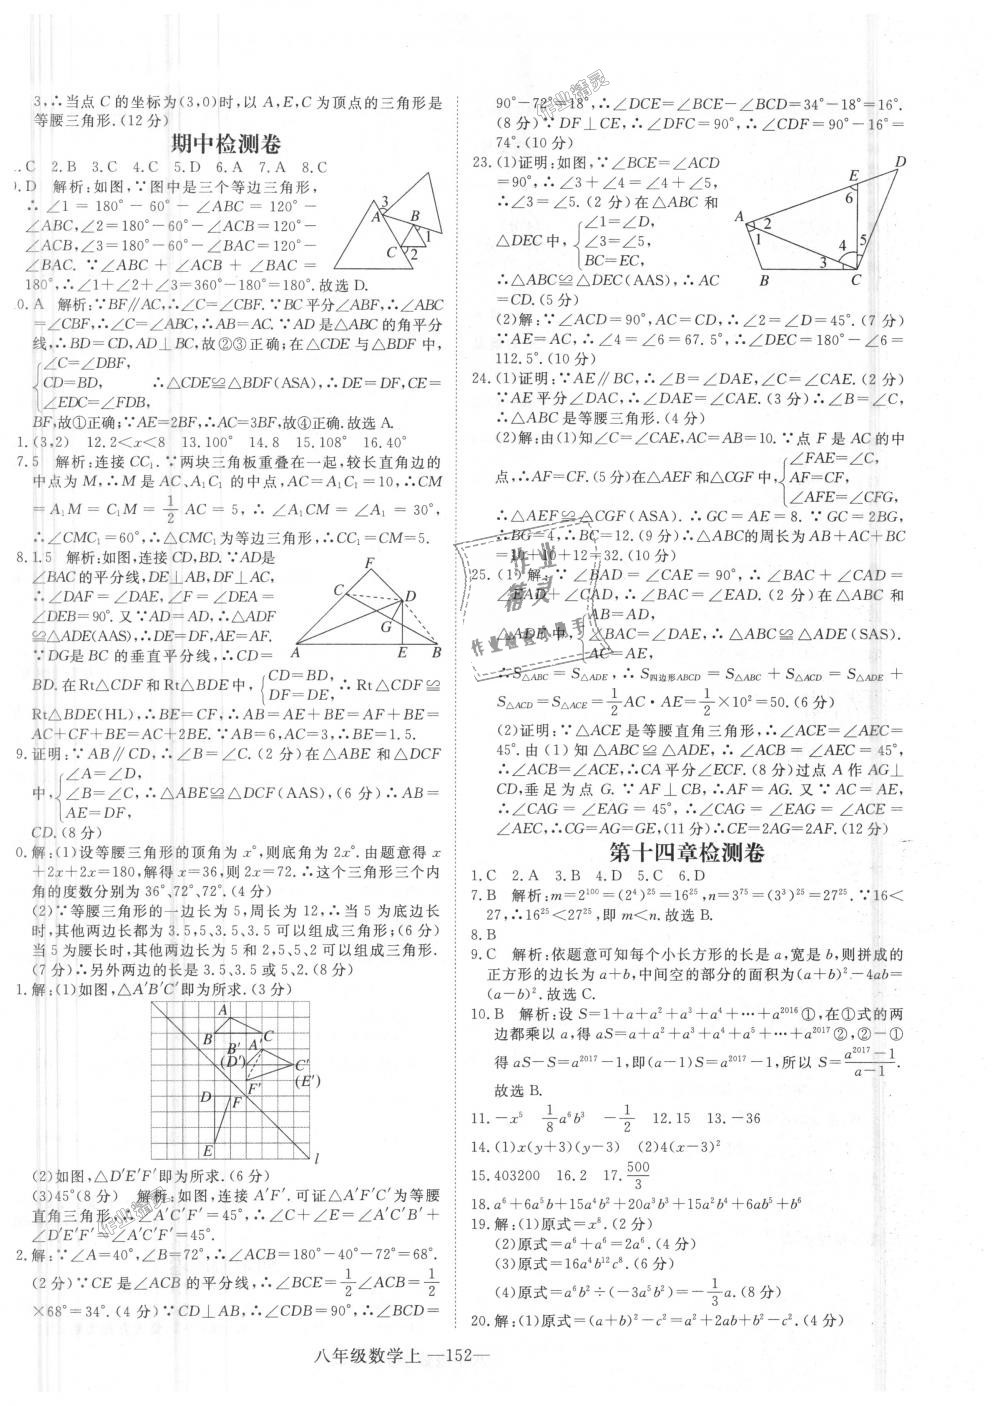 3,∴当点 C 的坐标为(3,0)时,以 A,E,C 为顶点的三角形是
等腰三角形.(12 分)
期中检测卷
. C 2. B 3. C 4. C 5. D 6. A 7. A 8. C
. D 解析:如图,∵图中是三个等边三角形,
∴∠1=180°-60°-∠ABC=120°-
∠ABC,∠2=180°-60°-∠ACB=120°-
∠ACB,∠3=180°-60°-∠BAC=120°-
∠BAC. ∵∠ABC+∠ACB+∠BAC=
180°,∴∠1+∠2+∠3=360°-180°=180°.故选 D.
3
A
B
1
C
2
0. A 解析:∵BF∥AC,∴∠C=∠CBF.∵BC 平分∠ABF,∴∠ABC
=∠CBF,∴∠C=∠ABC,∴AB=AC.∵AD 是△ABC 的角平分
线,∴BD=CD,AD⊥BC,故②③正确;在△CDE 与△BDF 中,
∠C=∠DBF,
CD=BD, ∴△CDE≌△BDF(ASA),∴DE=DF,CE=
∠EDC=∠FDB,
BF,故①正确;∵AE=2BF,∴AC=3BF,故④正确.故选 A.
1. (3,2) 12. 2<x<8 13. 100° 14. 8 15. 108° 16. 40°
7. 5 解析:连接 CC₁.∵两块三角板重叠在一起,较长直角边的
中点为 M,∴M 是 AC、A₁C₁ 的中点,AC=A₁C₁=10,∴CM
=A₁M=C₁M=1/2 AC=5,∴∠A₁CM=∠A₁=30°,
∴∠CMC₁=60°,∴△CMC₁为等边三角形,∴CC₁=CM=5.
8. 1.5 解析:如图,连接 CD,BD.∵AD是
∠BAC的平分线,DE⊥AB,DF⊥AC,
∴∠DAF=∠DAE,∠F=∠DEA=
∠DEB=90°.又∵AD=AD,∴△ADF
≌△ADE(AAS),∴DE=DF,AE=AF.
∵DG是 BC 的垂直平分线,∴CD=
F
C
D
G
A
E
B
BD.在Rt△CDF和Rt△BDE中,{CD=BD, DF=DE, ∴Rt△CDF≌
Rt△BDE(HL),∴BE=CF,∴AB=AE+BE=AF+BE=
AC+CF+BE=AC+2BE.∵AB=6,AC=3,∴BE=1.5.
9. 证明:∵AB∥CD,∴∠B=∠C.(2 分)在△ABE 和△DCF
∠A=∠D,
中,∠B=∠C,∴△ABE≌△DCF(AAS),(6 分)∴AB=
AE=DF,
CD.(8 分)
0. 解:(1)设等腰三角形的顶角为 x°,则底角为 2x°.由题意得 x
+2x+2x=180,解得 x=36,则 2x=72.∴这个三角形三个内
角的度数分别为 36°、72°、72°.(4 分)
(2)∵等腰三角形的一边长为 5,周长为 12,∴当 5 为底边长
时,其他两边长都为 3.5,5、3.5、3.5 可以组成三角形;(6分)
当 5 为腰长时,其他两边长为 5 和 2,5、5、2 可以组成三角形.
(7分)∴另外两边的长是 3.5、3.5 或 5、2.(8 分)
1. 解:(1)如图,△A′B′C′即为所求.(3 分)
A
B
C
B′
A′
(D′)
C′
(E′)
F′
D
F
E
l
(2)如图,△D′E′F′即为所求.(6 分)
(3)45°(8 分) 解析:如图,连接 A′F′.可证△A′F′C′为等腰
直角三角形,∴∠A′C′F′=45°,∴∠C+∠E=∠A′C′B′+
∠D′E′F′=∠A′C′F′=45°.
2. 解:∵∠A=40°,∠B=72°,∴∠ACB=180°-40°-72°=68°.
(2 分)∵CE 是∠ACB 的平分线,∴∠BCE=1/2∠ACB=1/2
×68°=34°.(4 分)∵CD⊥AB,∴∠CDB=90°,∴∠BCD=
90°-72°=18°,∴∠DCE=∠BCE-∠BCD=34°-18°=16°.
(8 分)∵DF⊥CE,∴∠DFC=90°,∴∠CDF=90°-16°=
74°.(10 分)
23. (1)证明:如图,∵∠BCE=∠ACD
=90°,∴∠3+∠4=∠4+∠5,
∴∠3=∠5.(2 分)在△ABC 和
∠1=∠D,
△DEC中,∠3=∠5,
BC=EC,
∴△ABC≌△DEC(AAS),∴AC
=CD.(5 分)
D
E
6
A
2
1
4
5
3
B
C
(2)解:∵∠ACD=90°,AC=CD,∴∠2=∠D=45°.(7 分)
∵AE=AC,∴∠4=∠6=67.5°,∴∠DEC=180°-∠6=
112.5°.(10 分)
24. (1)证明:∵AE∥BC,∴∠B=∠DAE,∠C=∠CAE.(2 分)
∵AE 平分∠DAC,∴∠DAE=∠CAE.(3 分)∴∠B=∠C,
∴△ABC 是等腰三角形.(4 分)
(2)解:由(1)知∠C=∠CAE,AC=AB=10.∵点 F 是 AC 的中
∠FAE=∠C,
点,∴AF=CF.(5 分)在△AEF 和△CGF 中,AF=CF,
∠AFE=∠CFG,
∴△AEF≌△CGF(ASA).∴GC=AE=8.∵GC=2BG,
∴BG=4,∴BC=12.(9 分)∴△ABC的周长为 AB+AC+BC
=10+10+12=32.(10 分)
25. (1)解:∵∠BAD=∠CAE=90°,∴∠BAC+∠CAD=
∠EAD+∠CAD,∴∠BAC=∠EAD.(2 分)在△ABC 和
AB=AD,
△ADE中,∠BAC=∠EAD,∴△ABC≌△ADE(SAS).
AC=AE,
∴S△ABC=S△ADE,∴S四边形ABCD=S△ABC+S△ACD=S△ADE+
S△ACD=S△ACE=1/2AC·AE=1/2×10²=50.(6 分)
(2)证明:∵△ACE是等腰直角三角形,∴∠ACE=∠AEC=
45°.由(1)知△ABC≌△ADE,∴∠ACB=∠AEC=45°,
∴∠ACB=∠ACE,∴CA平分∠ECF.(8 分)过点 A 作 AG⊥
CD,垂足为点 G.∵AF⊥CB,∴AF=AG.又∵AC=AE,
∴∠CAG=∠EAG=45°,∴∠CAG=∠EAG=∠ACE=
∠AEC,∴CG=AG=GE,(11 分)∴CE=2AG=2AF.(12 分)
第十四章检测卷
1. C 2. A 3. B 4. D 5. C 6. D
7. B 解析:m=2¹⁰⁰=(2⁴)²⁵=16²⁵,n=3⁷⁵=(3³)²⁵=27²⁵.∵16<
27,∴16²⁵<27²⁵,即 m<n.故选 B.
8. B
9. C 解析:依题意可知每个小长方形的长是 a,宽是 b,则拼成的
正方形的边长为 a+b,中间空的部分的面积为(a+b)²-4ab=
(a-b)².故选 C.
10. B 解析:设 S=1+a+a²+a³+a⁴+…+a²⁰¹⁶①,在①式的两
边都乘以 a,得 aS=a+a²+a³+a⁴+a⁵+…+a²⁰¹⁷②,②-①
得 aS-S=a²⁰¹⁷-1,即(a-1)S=a²⁰¹⁷-1,所以 S=(a²⁰¹⁷-1)/(a-1).
故选 B.
11. -x⁵ 1/8a⁶b³ -1/2 12. 15 13. -36
14. (1)x(y+3)(y-3) (2)4(x-3)²
15. 403200 16. 2 17. 500/3
18. a⁶+6a⁵b+15a⁴b²+20a³b³+15a²b⁴+6ab⁵+b⁶
19. 解:(1)原式=x⁸.(2 分)
(2)原式=a⁶+a⁶=2a⁶.(4 分)
(3)原式=16a⁴b¹²c⁸.(6 分)
(4)原式=a⁶b²÷(-3a⁵b²)=-1/3a.(8 分)
20. 解:(1)原式=(a+b)²-c²=a²+2ab+b²-c².(4 分)
八年级数学上 —152—
作业精灵
作业精灵
作业
精灵
作业检查小助手